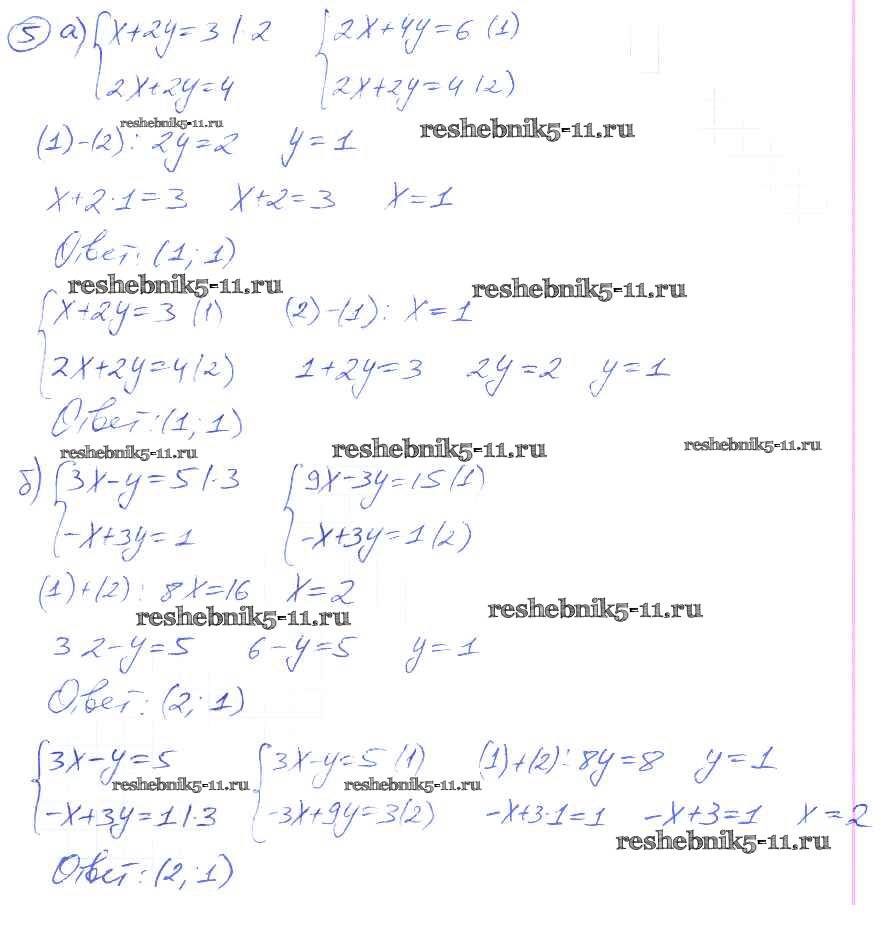 5 а) { x+2y=3 |·2 { 2x+4y=6 (1)
2x+2y=4 2x+2y=4 (2)
reshebnik5-11.ru reshebnik5-11.ru
(1)-(2): 2y=2 y=1
x+2·1=3 x+2=3 x=1
Ответ: (1; 1)
reshebnik5-11.ru reshebnik5-11.ru
{ x+2y=3 (1) (2)-(1): x=1
2x+2y=4 (2) 1+2y=3 2y=2 y=1
Ответ: (1; 1)
reshebnik5-11.ru reshebnik5-11.ru reshebnik5-11.ru
б) { 3x-y=5 |·3 { 9x-3y=15 (1)
-x+3y=1 -x+3y=1 (2)
(1)+(2): 8x=16 x=2
reshebnik5-11.ru reshebnik5-11.ru
3 2-y=5 6-y=5 y=1
Ответ: (2; 1)
{ 3x-y=5 { 3x-y=5 (1) (1)+(2): 8y=8 y=1
reshebnik5-11.ru reshebnik5-11.ru
-x+3y=1 |·3 -3x+9y=3 (2) -x+3·1=1 -x+3=1 x=2
reshebnik5-11.ru
Ответ: (2; 1)